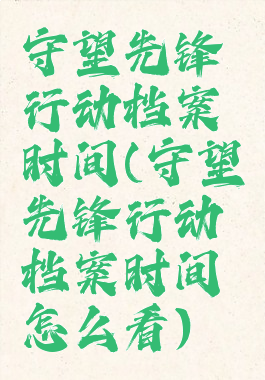 守望先锋
行动档案
时间(守望
先锋行动
档案时间
怎么看)